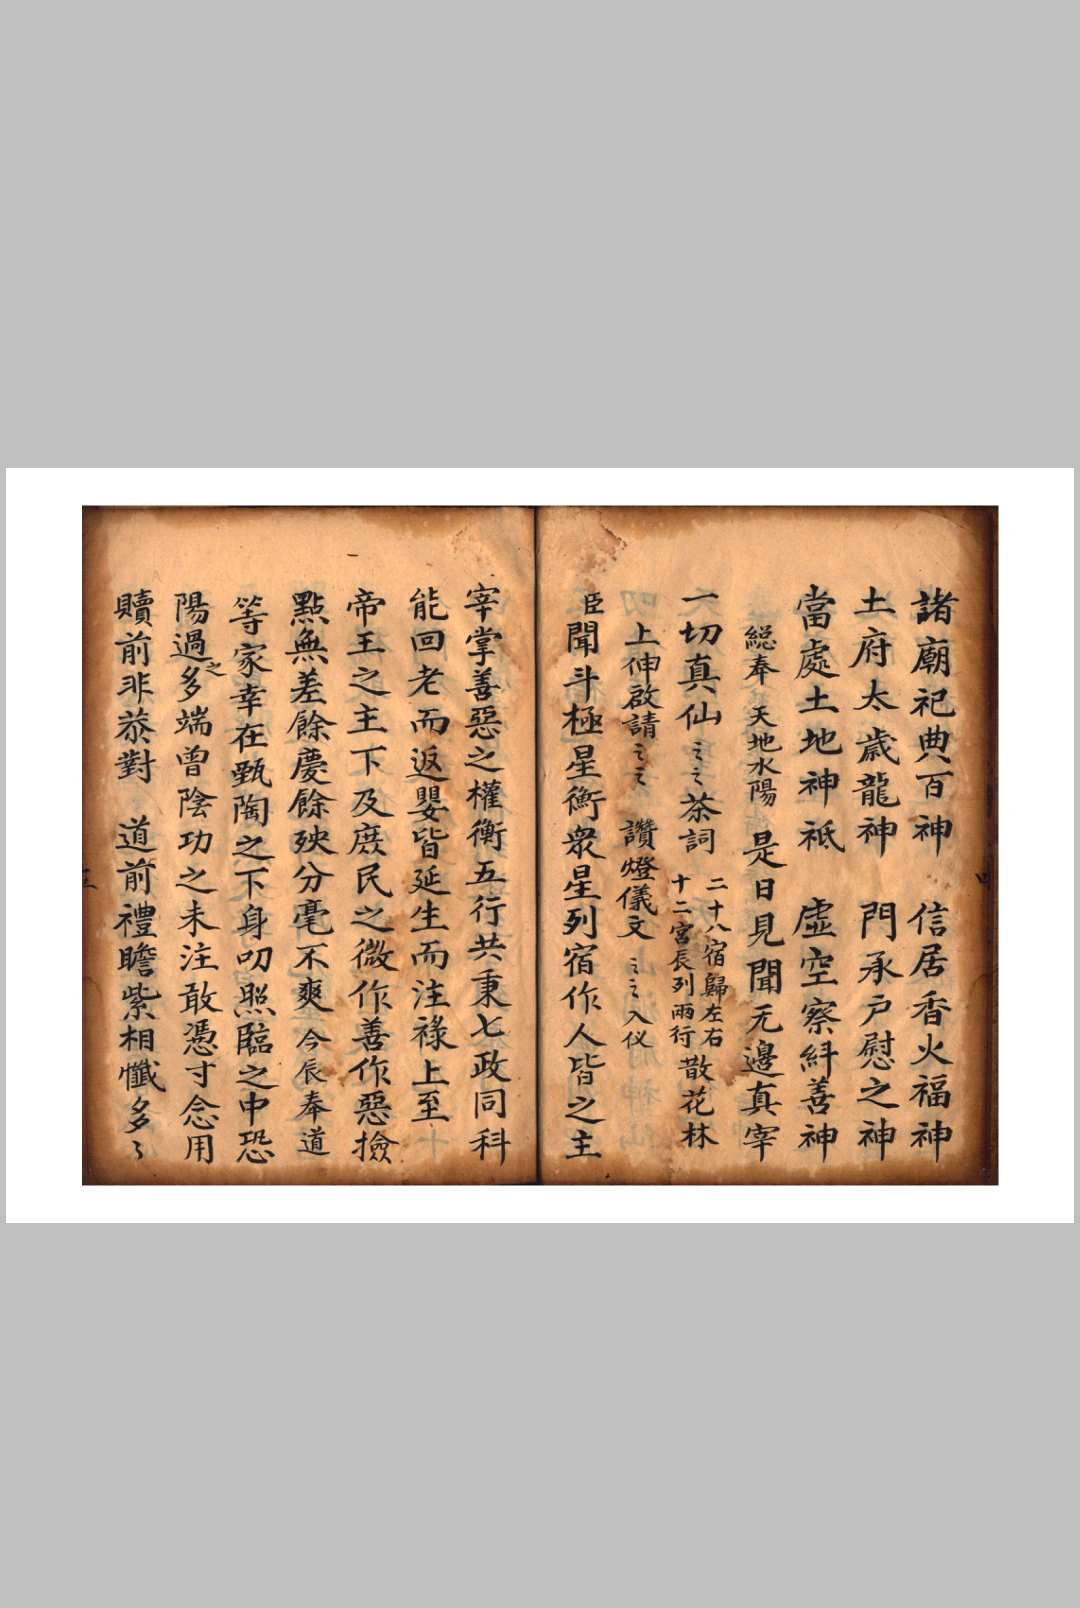 諸廟祀典百神　信居香火福神
土府太歲龍神　門承户慰之神
當處土地神祇　虛空察糾善神
総奉　天地水陽　是日見聞无邊真宰
一切真仙〻〻茶詞　二十八宿歸左右
十二宮辰列兩行　散花林
上伸啟請〻〻　讚燈儀文　〻〻入仪
臣聞斗極星衡眾星列宿作人皆之主
宰掌善惡之權衡五行共秉七政同科
能回老而返嬰皆延生而注祿上至
帝王之主下及庶民之微作善作惡撿
點無差餘慶餘殃分毫不爽今辰奉道
等家幸在甄陶之下身叨照臨之中恐
陽過之多端曾陰功之未注敢憑寸念用
贖前非恭對　道前禮瞻紫相懺多〻